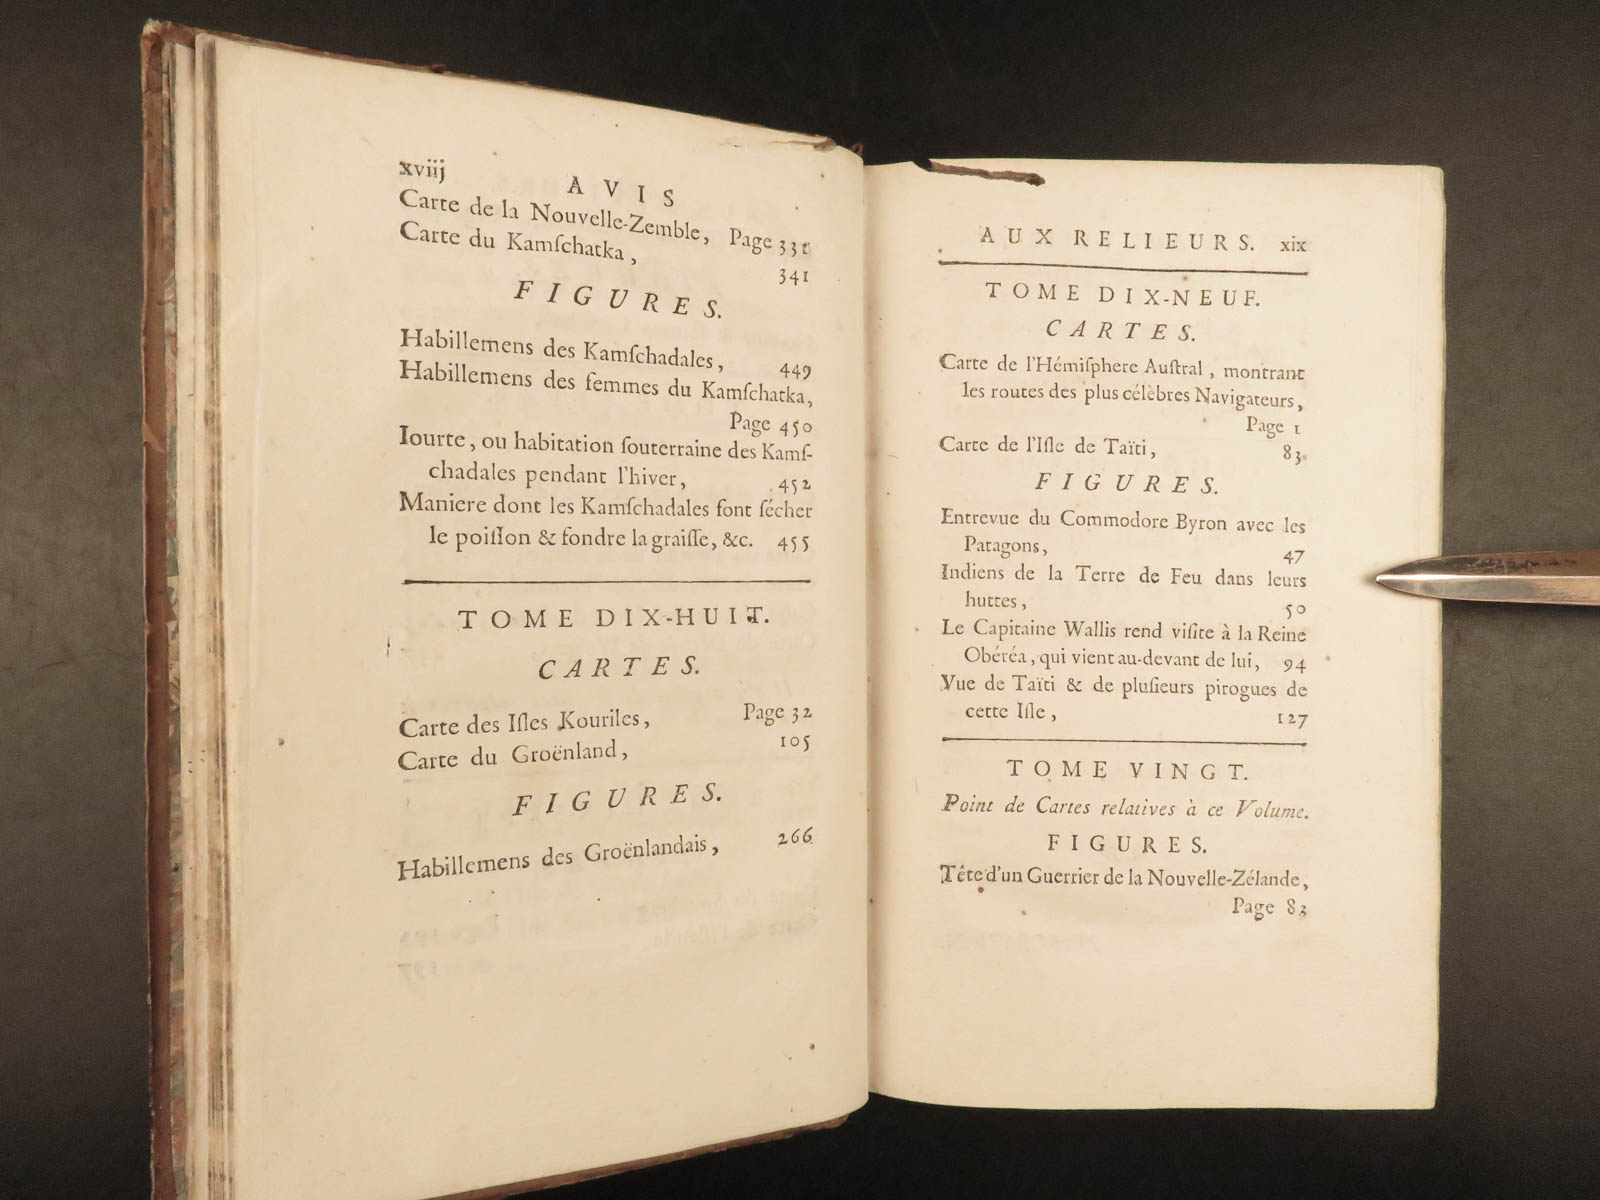 xviij AVIS
Carte de la Nouvelle-Zemble, Page 331
Carte du Kamſchatka, 341
FIGURES.
Habillemens des Kamſchadales, 449
Habillemens des femmes du Kamſchatka,
Page 450
Iourte, ou habitation ſouterraine des Kamſ-
chadales pendant l'hiver, 452
Maniere dont les Kamſchadales font ſécher
le poiſſon & fondre la graiſſe, &c. 455
TOME DIX-HUIT.
CARTES.
Carte des Iſles Kouriles, Page 32
Carte du Groënland, 105
FIGURES.
Habillemens des Groënlandais, 266
AUX RELIEURS. xix
TOME DIX-NEUF.
CARTES.
Carte de l'Hémiſphere Auſtral, montrant
les routes des plus célèbres Navigateurs,
Page 1
Carte de l'Iſle de Taïti, 83
FIGURES.
Entrevue du Commodore Byron avec les
Patagons, 47
Indiens de la Terre de Feu dans leurs
huttes, 50
Le Capitaine Wallis rend viſite à la Reine
Obéréa, qui vient au-devant de lui, 94
Vue de Taïti & de pluſieurs pirogues de
cette Iſle, 127
TOME VINGT.
Point de Cartes relatives à ce Volume.
FIGURES.
Tête d'un Guerrier de la Nouvelle-Zélande,
Page 83